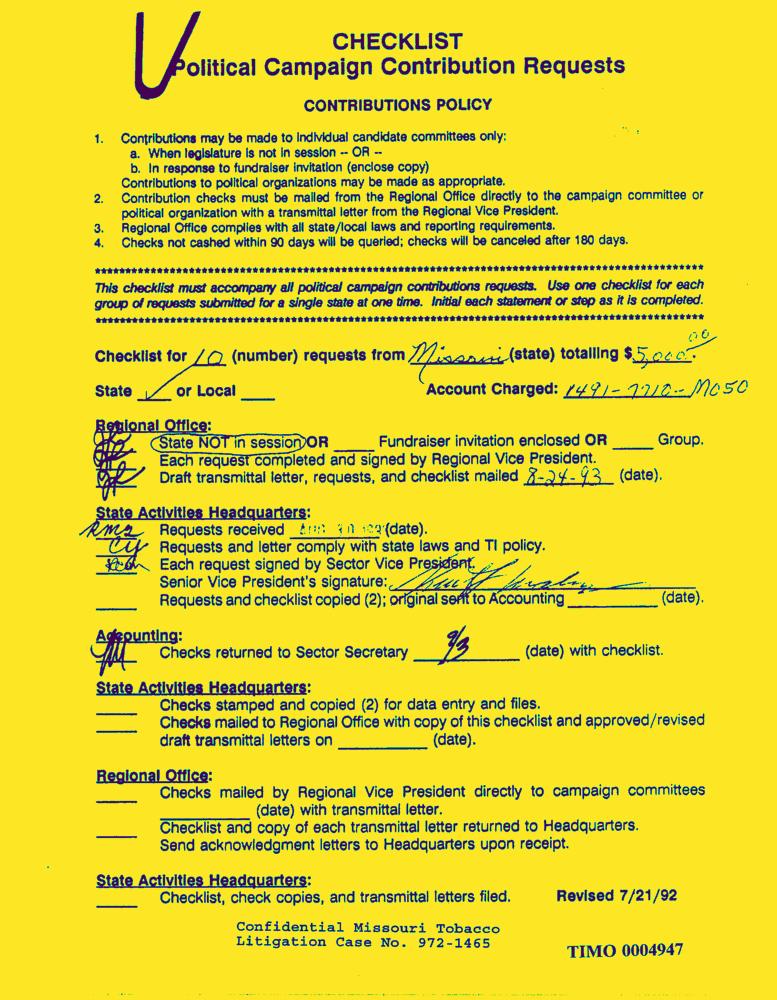 CHECKLIST
Political Campaign Contribution Requests
CONTRIBUTIONS POLICY
1. Contributions may be made to individual candidate committees only:
a. When legislature is not in session -- OR --
b. In response to fundraiser invitation (enclose copy)
Contributions to political organizations may be made as appropriate.
2. Contribution checks must be mailed from the Regional Office directly to the campaign committee or
political organization with a transmittal letter from the Regional Vice President.
3. Regional Office complies with all state/local laws and reporting requirements.
4. Checks not cashed within 90 days will be queried; checks will be canceled after 180 days.
This checklist must accompany all political campaign contributions requests. Use one checklist for each
group of requests submitted for a single state at one time. Initial each statement or step as it is completed.
Checklist for 10 (number) requests from Missouri (state) totalling $5,000.00
State ✓ or Local ____ Account Charged: 1491-7710-MO50
Regional Office:
State NOT in session OR ____ Fundraiser invitation enclosed OR ____ Group.
Each request completed and signed by Regional Vice President.
Draft transmittal letter, requests, and checklist mailed 8-24-93 (date).
State Activities Headquarters:
RMS Requests received (date).
Requests and letter comply with state laws and TI policy.
Each request signed by Sector Vice President.
Senior Vice President's signature:
Requests and checklist copied (2); original sent to Accounting ____ (date).
Accounting:
Checks returned to Sector Secretary 9/3 (date) with checklist.
State Activities Headquarters:
Checks stamped and copied (2) for data entry and files.
Checks mailed to Regional Office with copy of this checklist and approved/revised
draft transmittal letters on ____ (date).
Regional Office:
Checks mailed by Regional Vice President directly to campaign committees
____ (date) with transmittal letter.
Checklist and copy of each transmittal letter returned to Headquarters.
Send acknowledgment letters to Headquarters upon receipt.
State Activities Headquarters:
Checklist, check copies, and transmittal letters filed. Revised 7/21/92
Confidential Missouri Tobacco
Litigation Case No. 972-1465
TIMO 0004947